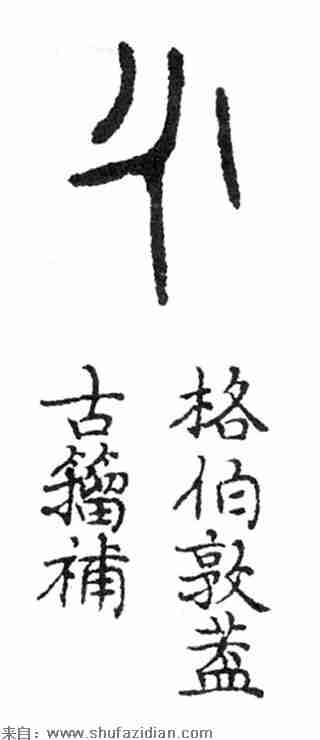 格伯敦蓋
古籀補
来自：www.shufazidian.com